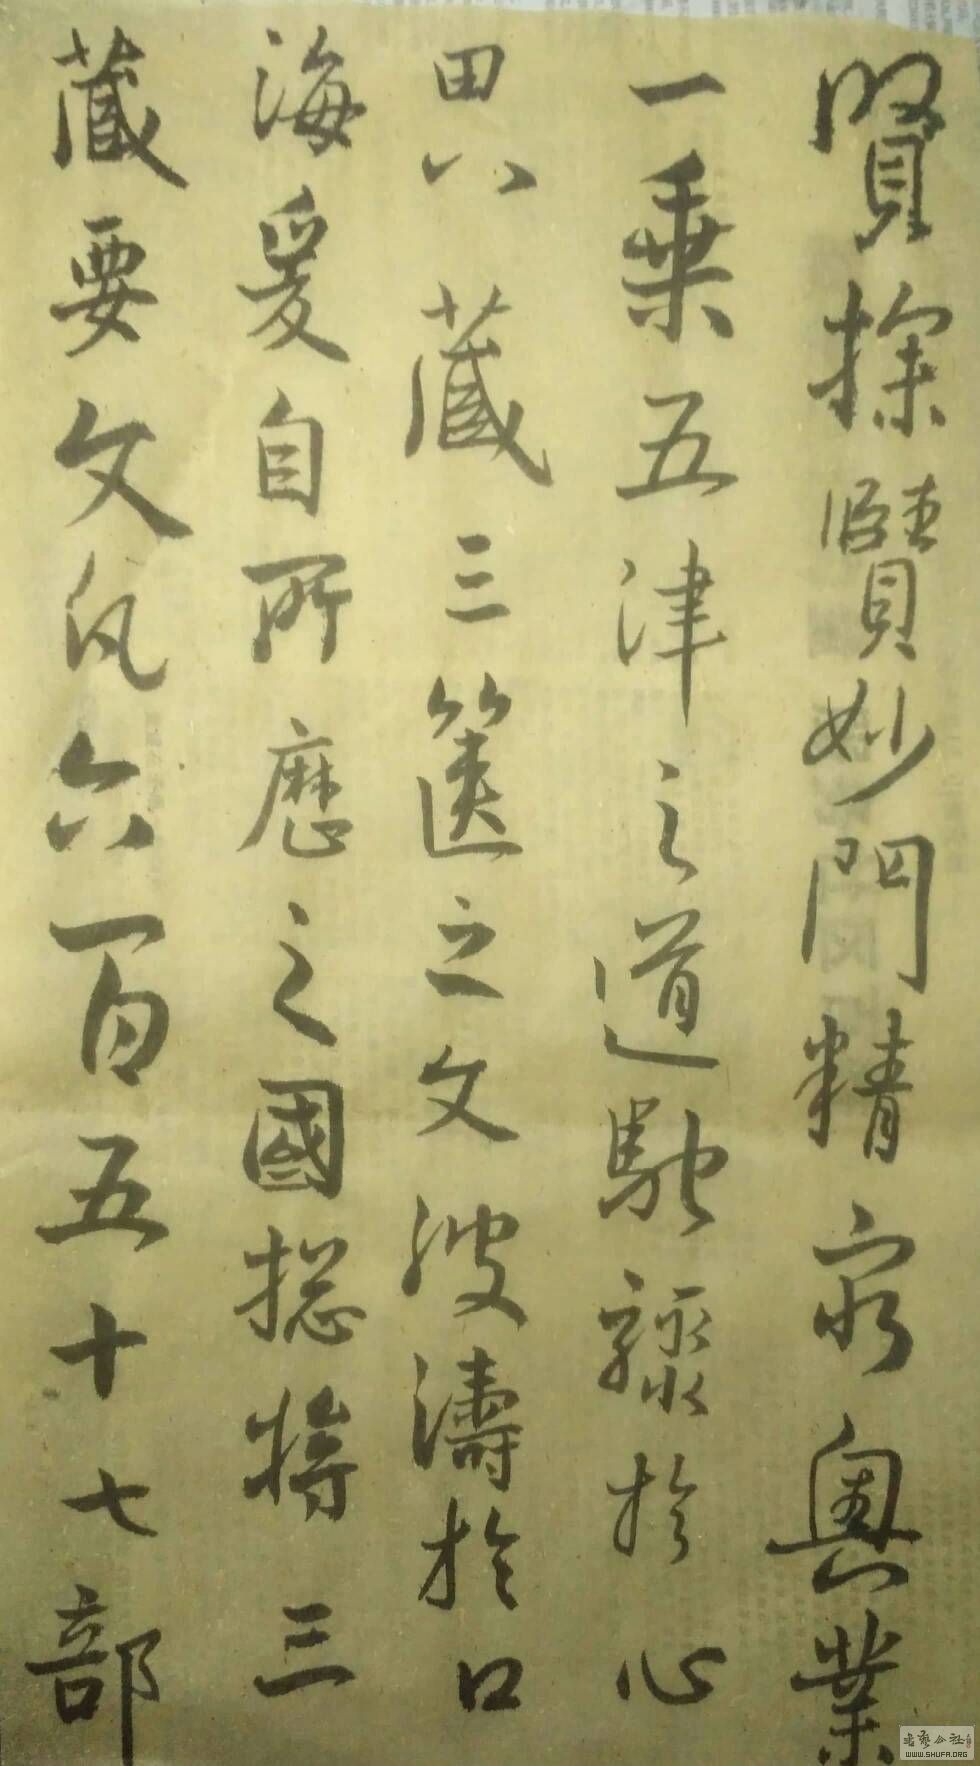 賢探賾妙門精窮奧業
一乘五津之道馳驟於心
田八藏三篋之文波濤於口
海爰自所歷之國揔將三
藏要文凡六百五十七部
书艺公社
WWW.SHUFA.ORG